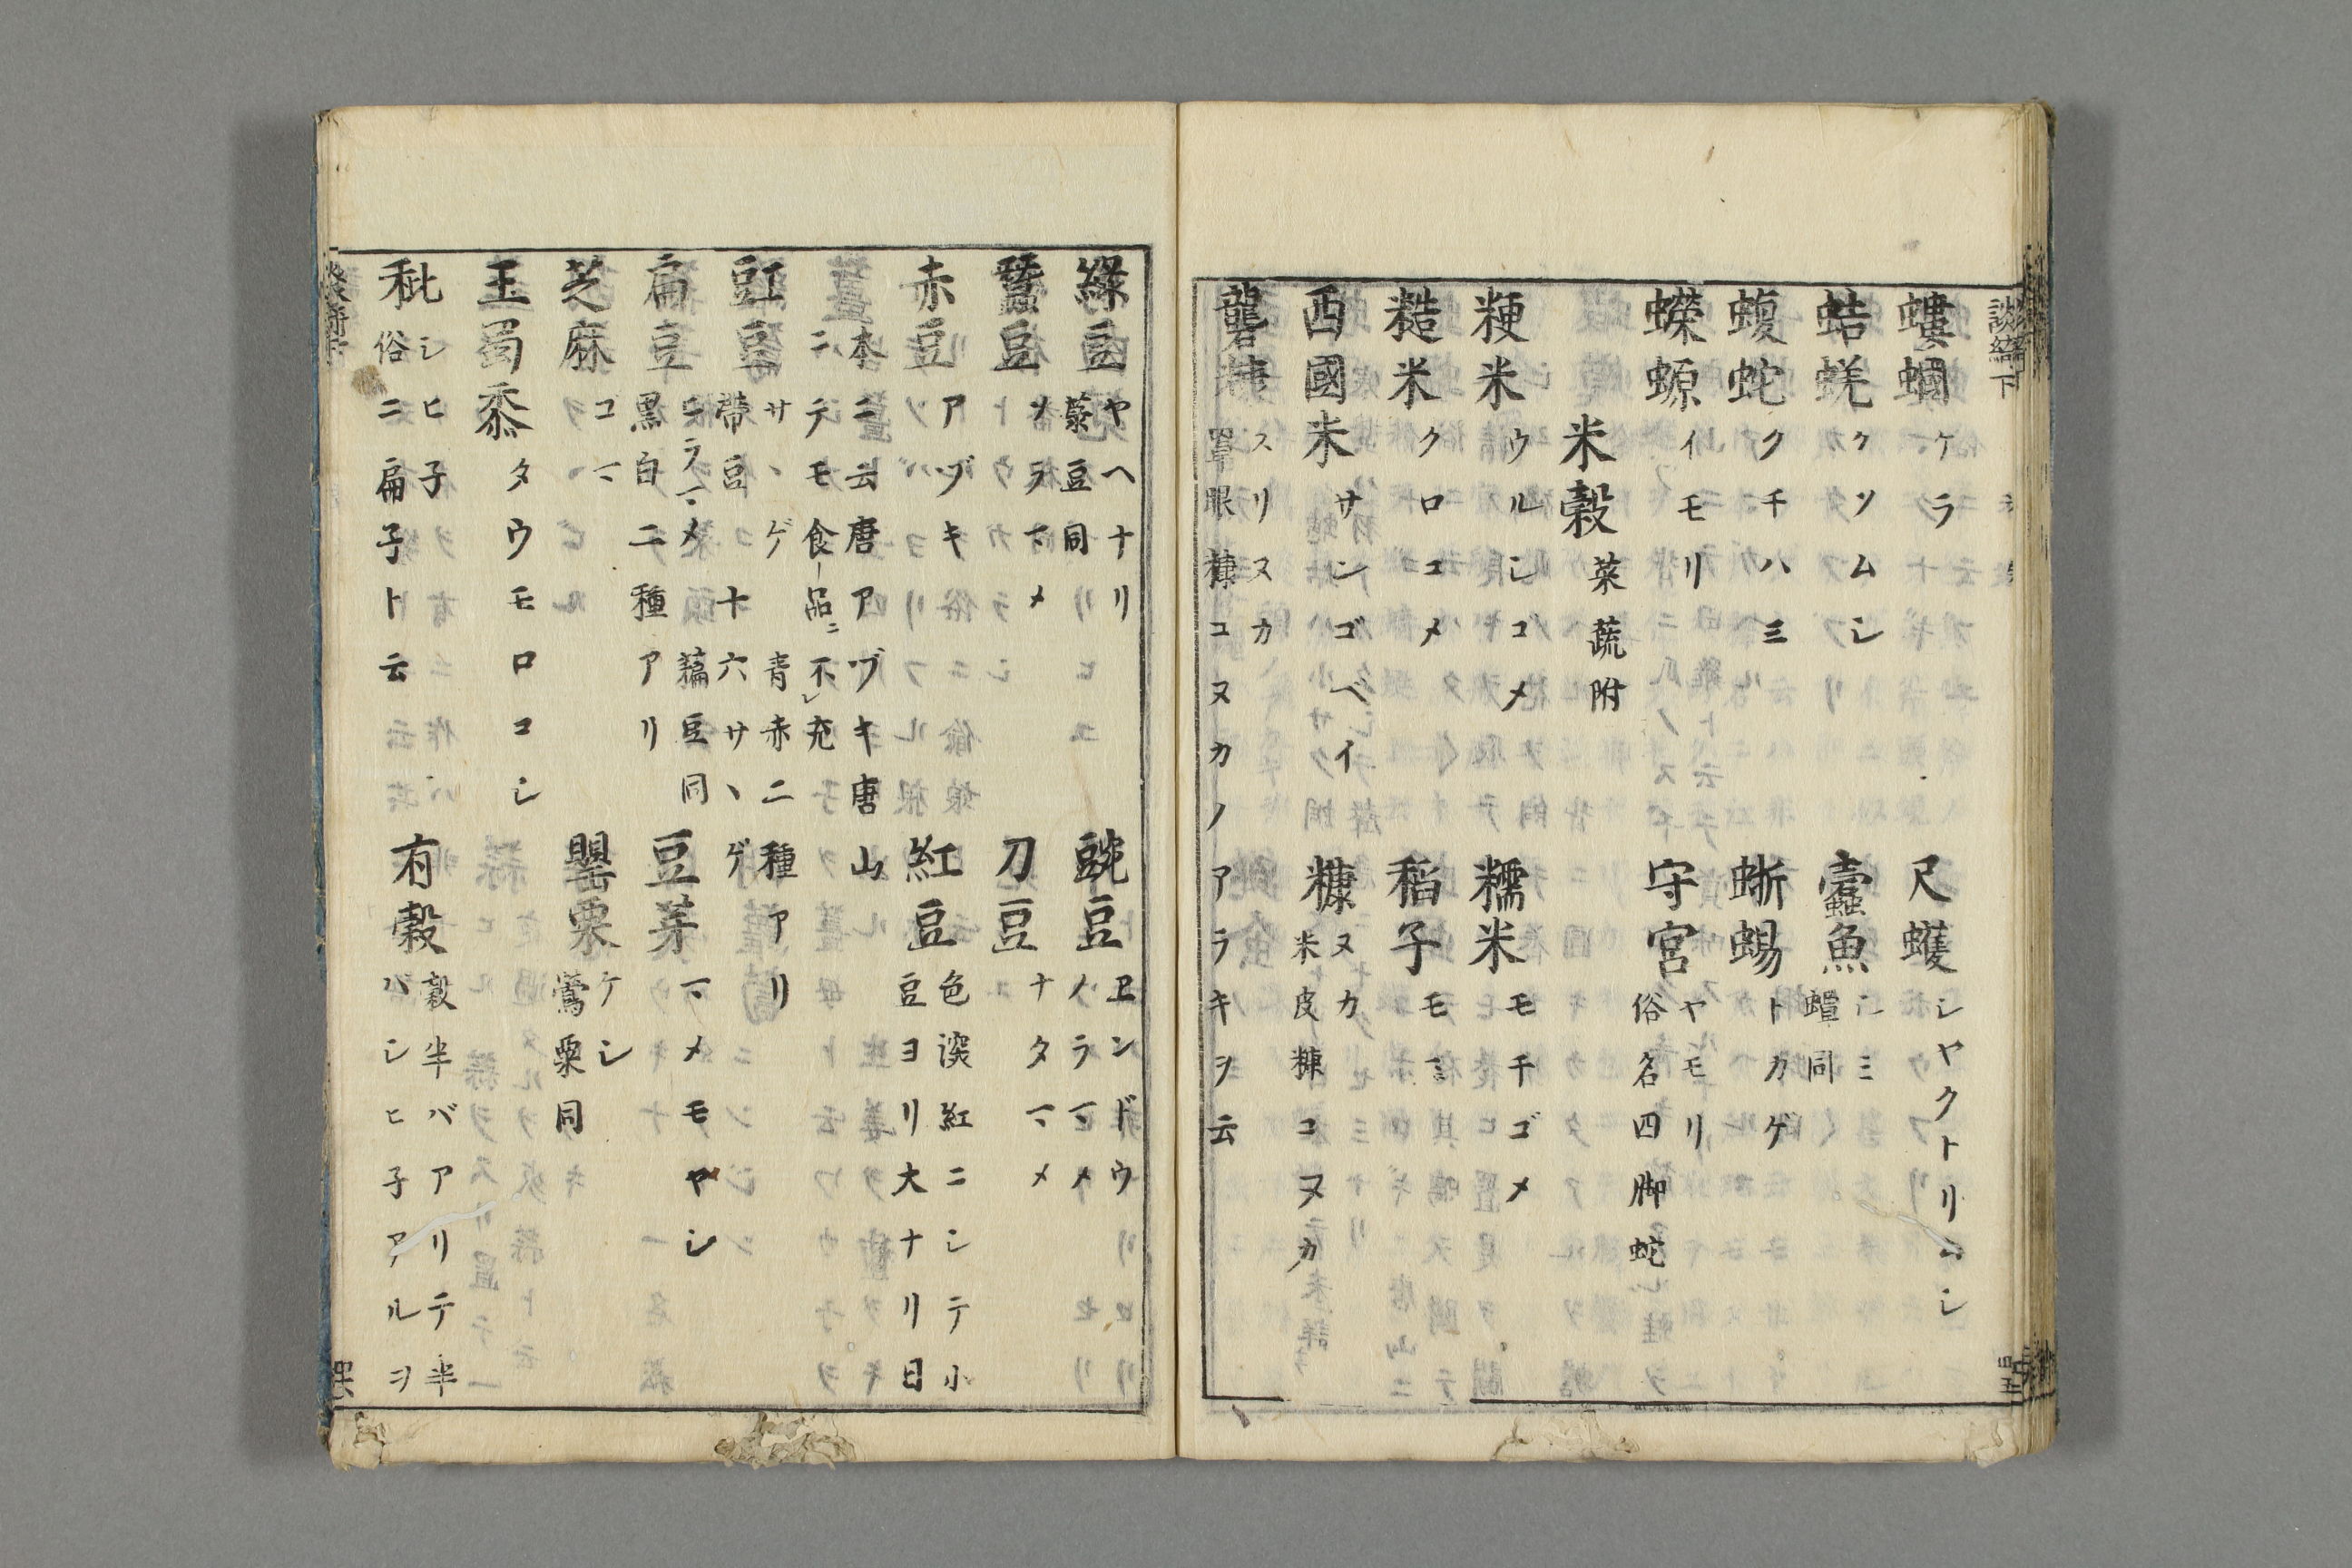 談緒下
螻蟈 ケラ
尺蠖 シヤクトリムシ
蛣蜣 クソムシ
蠧魚 シミ
蟫同
蝮蛇 クチハミ
蜥蜴 トカゲ
蠑螈 イモリ
守宮 ヤモリ
俗名四脚蛇
米穀 菜蔬附
粳米 ウルシコメ
糯米 モチゴメ
糙米 クロコメ
稻子 モミ
西國米 サンゴベイ
糠 ヌカ
米皮糠コヌカ
礱糠 スリヌカ
罩眼糠コヌカノアラキヲ云
四十五
綠豆 ヤヘナリ
菉豆同
豌豆 ヱンドウ
ノラマメ
蠶豆 ソラマメ
刀豆 ナタマメ
赤豆 アヅキ
紅豆 色深紅ニシテ小
豆ヨリ大ナリ日
本ニ云唐アヅキ唐山
ニテモ食品ニ不充
豇豆 サヽゲ 青赤二種アリ
帶豆 十六サヽゲ
扁豆 ヒラマメ 藊豆同
黒白二種アリ
豆芽 マメモヤシ
芝麻 コマ
罌粟 ケシ
鶯粟同
玉蜀黍 タウモロコシ
秕 シヒ子
俗ニ扁子ト云
有穀 穀半バアリテ半
バシヒ子アルヲ